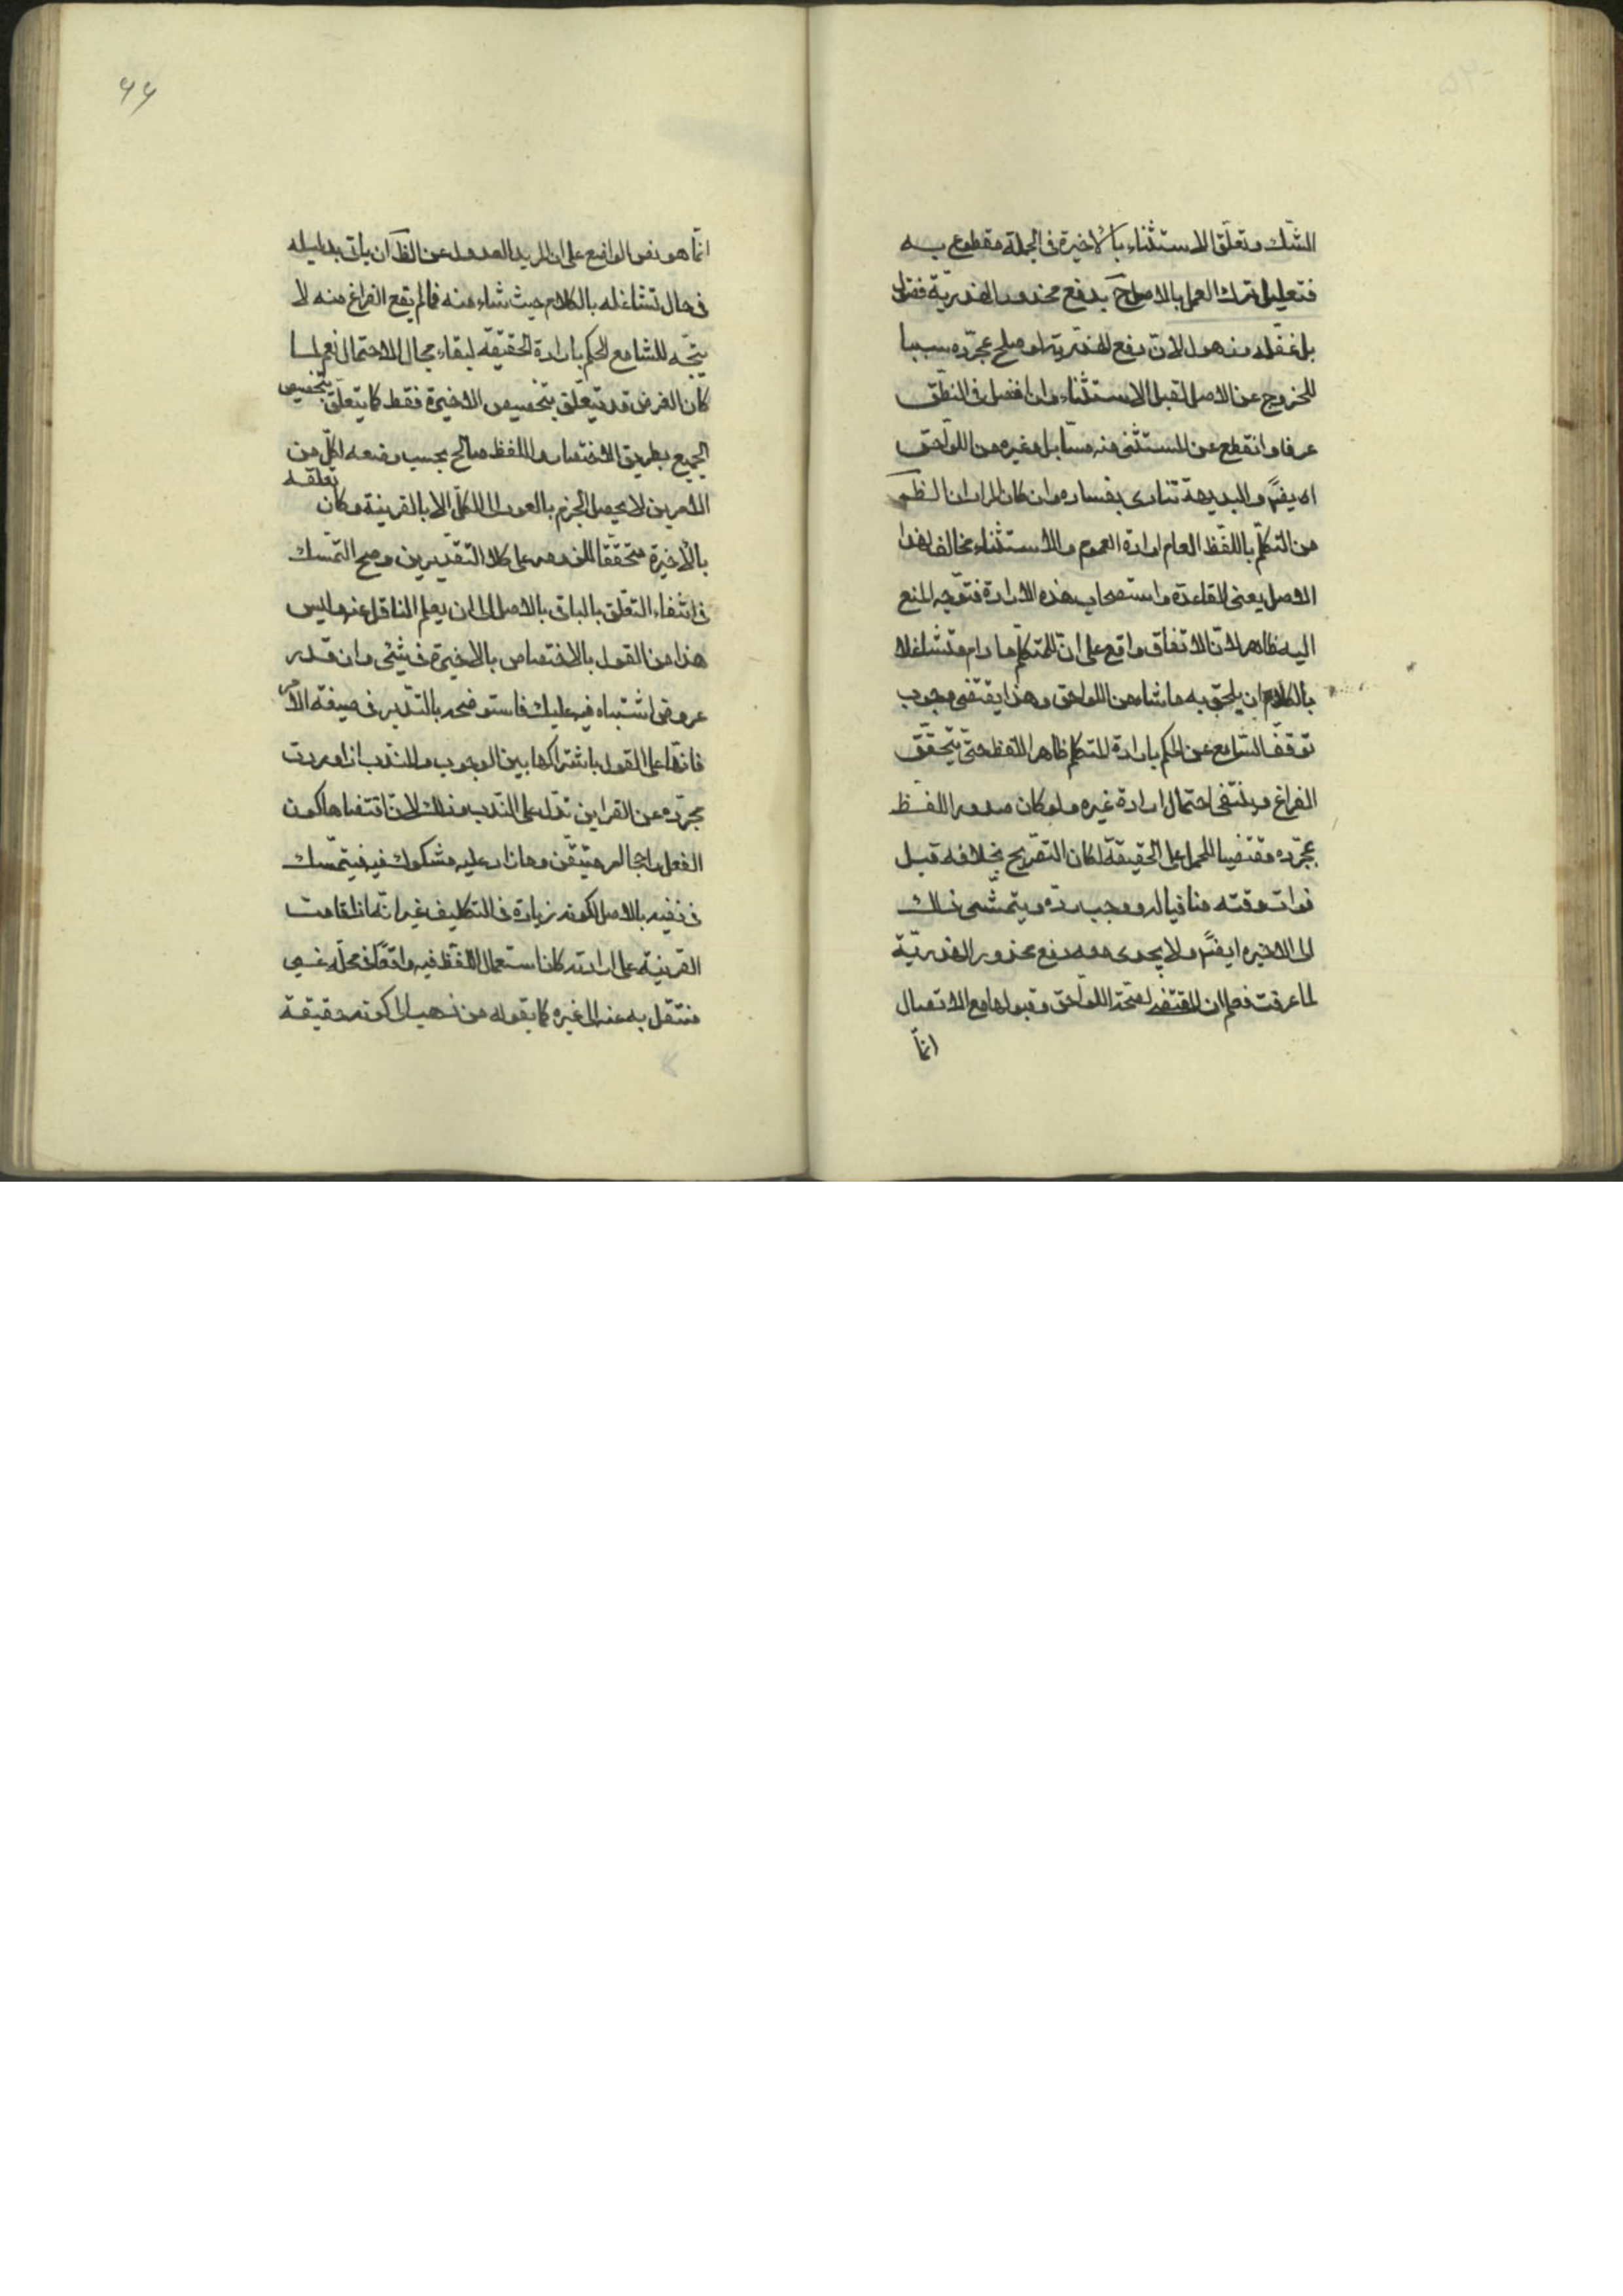 الشّك وتعلّق الاستثناء بالاخيرة فى الجملة مقطوع به
فتعليل ترك العمل بالاصل ح بدفع محذور الهذريّة فضول
بل غفلة وذهول لانّ دفع الهذرية لو صلح بمجرّده سببا
للخروج عن الاصل لقبل الاستثناء وان انفصل فى النطق
عرفا وانقطع عن المستثنى منه حسّا بل وغيره من اللواحق
ايضً والبديهة تنادى بفساده وان كان المراد ان الظ
من التكلّم باللفظ العام ارادة العموم والاستثناء مخالف لهذا
الاصل يعنى القاعدة واستصحاب هذه الارادة فتوجّه المنع
اليه ظاهر لانّ الاتفاق واقع على انّ للمتكلّم ما دام متشاغلا
بالكلام ان يلحق به ما شاء من اللواحق وهذا يقتضى وجوب
توقف السّامع عن الحكم بارادة المتكلم ظاهر اللفظ حتى يتحقّق
الفراغ وينتفى احتمال ارادة غيره ولو كان صدور اللفظ
بمجرّده مقتضيا للحمل على الحقيقة لكان التصريح بخلافه قبل
فوات وقته منافيا له ووجب ردّه ويتمشّى ذلك
الى الاخيره ايضً ولا يجدى معه دفع محذور الهذريّة
لما عرفت فعلم ان المقتضى لصحّة اللواحق وقبولها مع الاتصال
انمّا
٤٤
انمّا هو نص الواضع على ان لمريد العدول عن الظ ان يأتى بدليله
فى حال تشاغله بالكلام حيث شاء منه فما لم يقع الفراغ منه لا
يتجّه للسّامع الحكم بارادة الحقيقة لبقاء مجال الاحتمال نعم لما
كان الغرض قد يتعلّق بتخصيص الاخيرة فقط كما يتعلّق بتخصيص
الجميع بطريق الاختصار واللفظ صالح بحسب وضعه لكلّ من
الامرين لا يحصل الجزم بالعود الى الكلّ الا بالقرينة وكان تعلقه
بالأخيرة متحققا للزومه على كلا التقديرين وصح التمسّك
فى انتفاء التعّلق بالباقى بالاصل الى ان يعلم الناقل عنه وليس
هذا من القول بالاختصاص بالاخيرة فى شئ وان قدر
عروض اشتباه فيه عليك فاستوضحه بالتدّبر فى صيغة الامر
فانّها على القول باشتراكها بين الوجوب والندب اذا وردت
مجرّده عن القراين تدل على الندب وذلك لانّ اقتضاها كون
الفعل راجحا امر متيقّن وما زاد عليه مشكوك فيه فيتمّسك
فى نفيه بالاصل لكونه زيادة فى التكليف غير انّه اذا قامت
القرينة على ارادته كان استعمال اللفظ فيه واقعًا فى محلّه غير
منتقل به عنه الى غيره كما يقوله من ذهب الى كونه حقيقة